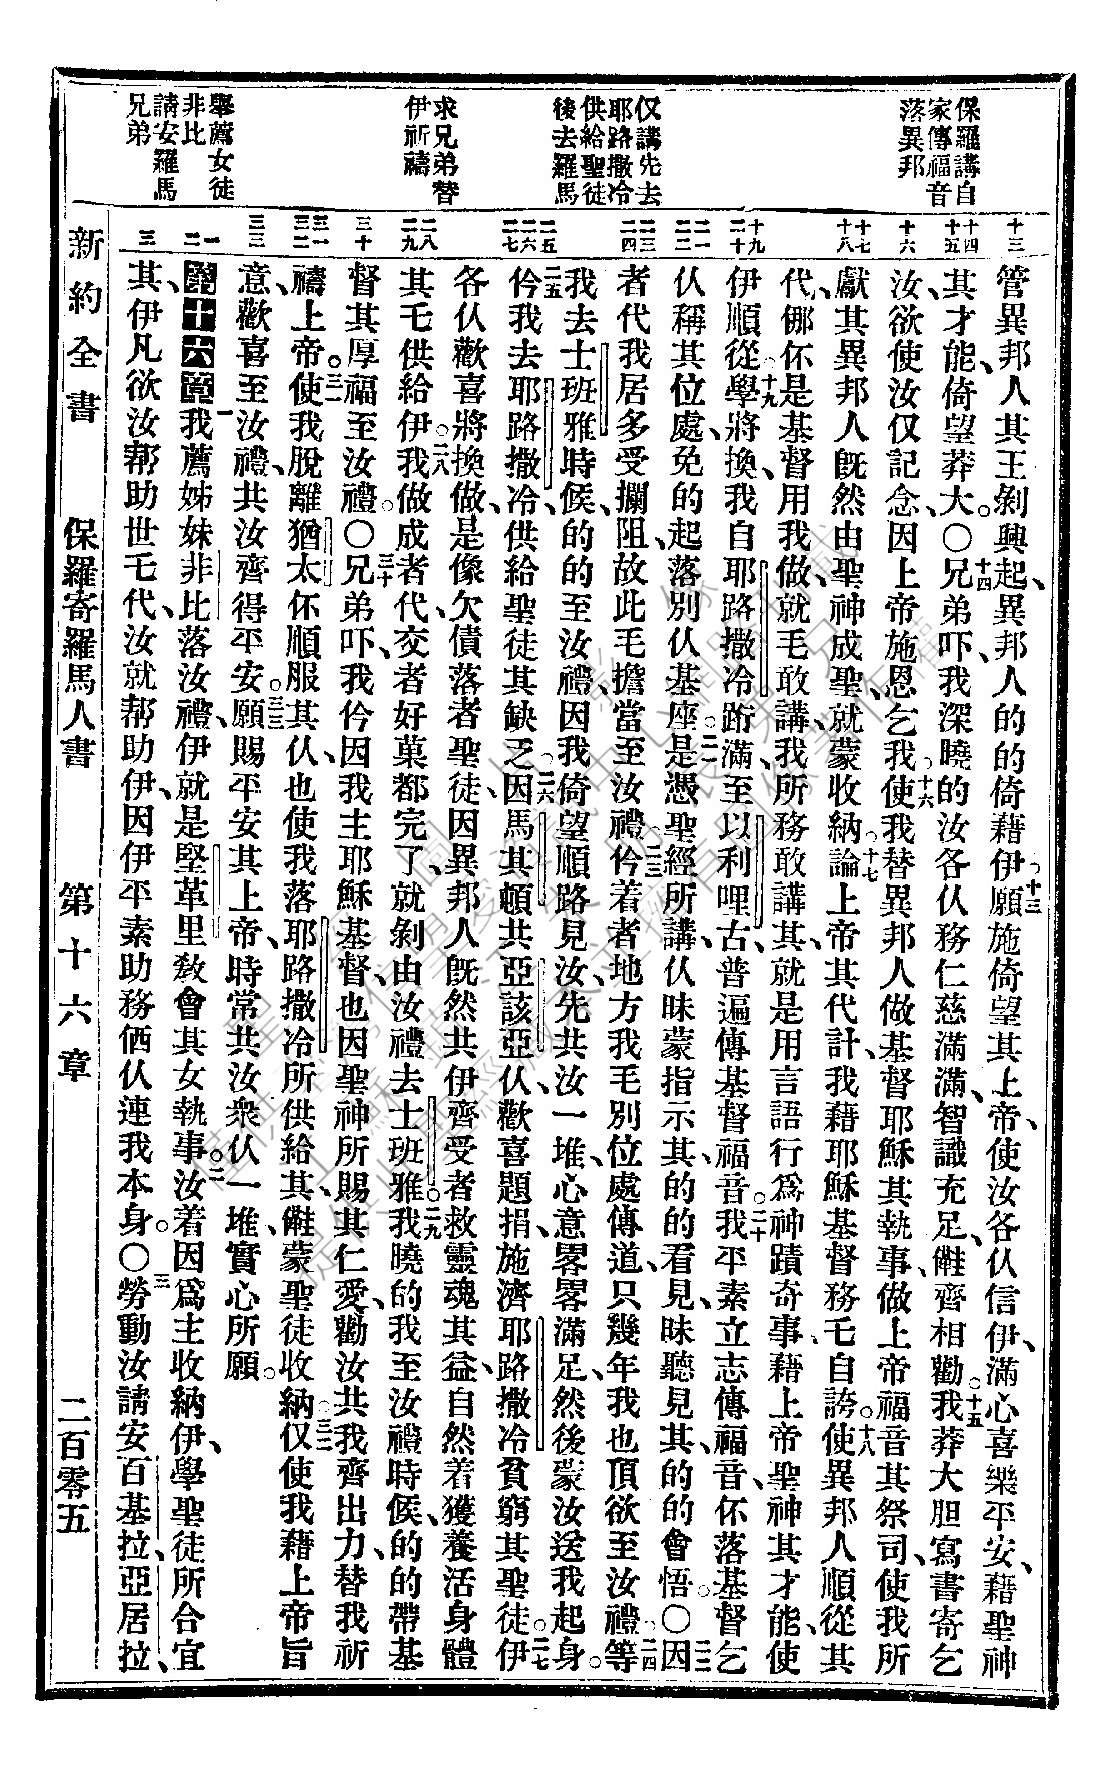 保羅講自
家傳福音
落異邦
仅講先去
耶路撒冷
供給聖徒
後去羅馬
求兄弟替
伊祈禱
舉薦女徒
非比
請安羅馬
兄弟
十三
十四
十五
十六
十七
十八
十九
二十
二一
二二
二三
二四
二五
二六
二七
二八
二九
三十
三一
三二
三三
一
二
三
管異邦人其王剝興起、異邦人的的倚藉伊、十三願施倚望其上帝、使汝各仈信伊、滿心喜樂平安、藉聖神
其才能、倚望莽大。○十四兄弟吓、我深曉的汝各仈務仁慈滿滿、智識充足、齊相勸。十五我莽大胆寫書寄乞
汝、欲使汝仅記念、因上帝施恩乞我、十六使我替異邦人做基督耶穌其執事、做上帝福音其祭司、使我所
獻其異邦人既然由聖神成聖、就蒙收納。十七論上帝其代計、我藉耶穌基督務乇自誇。十八使異邦人順從其
代、㑚伓是基督用我做、就毛敢講、我所務敢講其、就是用言語行為神蹟奇事、藉上帝聖神其才能、使
伊順從學、十九將換我自耶路撒冷跸滿至以利哩古、普遍傳基督福音。二十我平素立志傳福音、伓落基督乞
仈稱其位處、免的起落別仈基座。二一是憑聖經所講、仈昧蒙指示其的的看見、昧聽見其的的會悟。○二二因
者代我居多受攔阻、故此毛擔當至汝禮、二三仱着者地方我毛別位處傳道、只幾年我也頂欲至汝禮等、二四
我去士班雅時候、的的至汝禮、因我倚望順路見汝、先共汝一堆、心意畧畧滿足、然後蒙汝送我起身。
二五仱我去耶路撒冷、供給聖徒其缺乏、二六因馬其頓共亞該亞仈歡喜題捐、施濟耶路撒冷貧窮其聖徒。二七伊
各仈歡喜將換做、是像欠債落者聖徒、因異邦人既然共伊齊受者救靈魂其益、自然着獲養活身體
其乇供給伊。二八我做成者代、交者好菓都完了、就剝由汝禮去士班雅。二九我曉的我至汝禮時候、的的帶基
督其厚福至汝禮。○三十兄弟吓、我仱因我主耶穌基督、也因聖神所賜其仁愛、勸汝共我齊出力、替我祈
禱上帝。三一使我脫離猶太伓順服其仈、也使我落耶路撒冷所供給其、蒙聖徒收納。三二仅使我藉上帝旨
意、歡喜至汝禮、共汝齊得平安。三三願賜平安其上帝、時常共汝衆仈一堆、實心所願。
第十六章一我薦姊妹非比落汝禮、伊就是堅革里教會其女執事。二汝着因為主收納伊、學聖徒所合宜
其、伊凡欲汝幫助世乇代、汝就幫助伊、因伊平素助務価仈連我本身。○三勞動汝請安百基拉、亞居拉、
新約全書　保羅寄羅馬人書　第十六章　二百零五